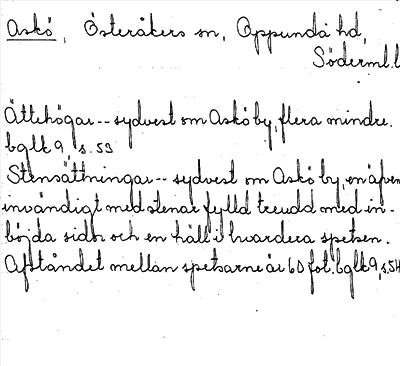 Askö, Österåkers sn, Oppunda hd,
Söderml.l
Ättehögar -- sydvest om Askö by, flera mindre.
bglk 9, s. 53
Stensättningar -- sydvest om Askö by, en äfven
invändigt med stenar fylld treudd med in-
böjda sidor och en häll i hvardera spetsen.
Afståndet mellan spetsarne är 60 fot. bglk 9, s. 54